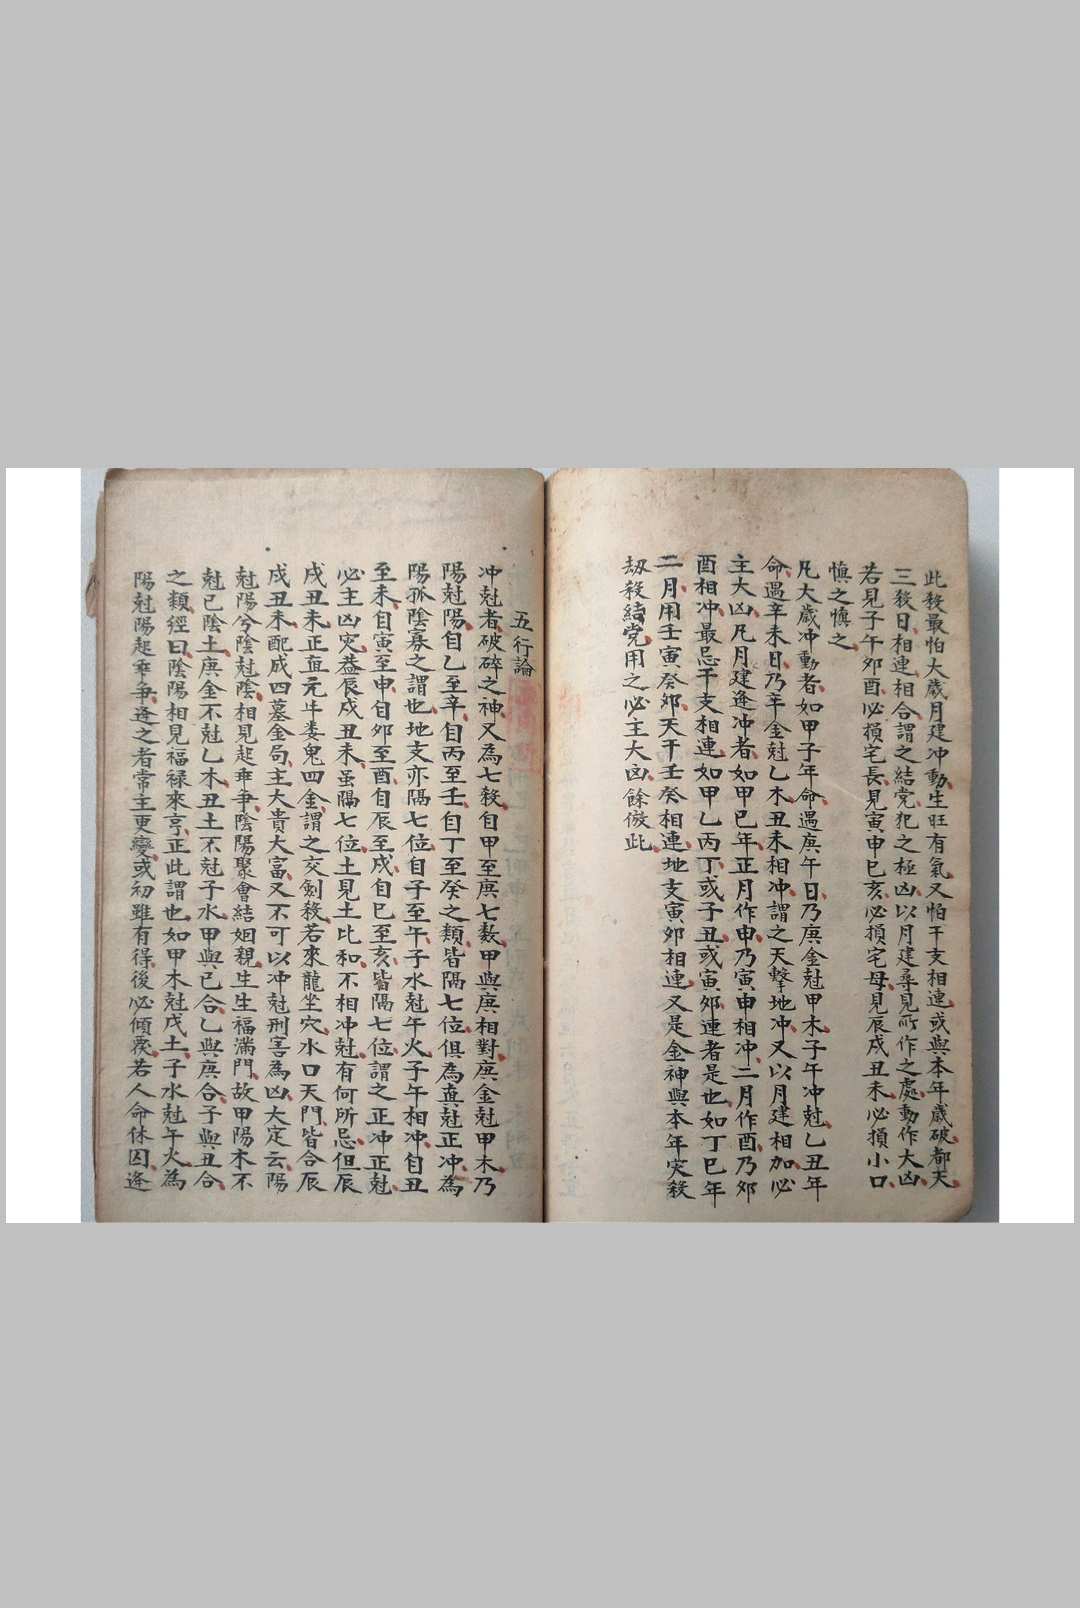 此殺最怕大歲月建冲動生旺有氣又怕干支相連或與本年歲破都天
三殺日相連相合謂之結党犯之極凶以月建尋見所作之處動作大凶
若見子午夘酉必損宅長見寅申巳亥必損宅母見辰戌丑未必損小口
慎之慎之
凡大歲冲動者如甲子年命遇庚午日乃庚金尅甲木子午冲尅乙丑年
命遇辛未日乃辛金尅乙木丑未相冲謂之天擊地冲又以月建相加必
主大凶凡月建逢冲者如甲巳年正月作申乃寅申相冲二月作酉乃夘
酉相冲最忌干支相連如甲乙丙丁或子丑或寅夘連者是也如丁巳年
二月用壬寅癸夘天干壬癸相連地支寅夘相連又是金神與本年灾殺
刼殺結党用之必主大凶餘倣此
五行論
冲尅者破碎之神又為七殺自甲至庚七数甲與庚相對庚金尅甲木乃
陽尅陽自乙至辛自丙至壬自丁至癸之類皆隔七位俱為眞尅正冲為
陽孤陰寡之謂也地支亦隔七位自子至午子水尅午火子午相冲自丑
至未自寅至申自夘至酉自辰至戌自巳至亥皆隔七位謂之正冲正尅
必主凶灾葢辰戌丑未虽隔七位土見土比和不相冲尅有何所忌但辰
戌丑未正直元牛娄鬼四金謂之交劍殺若來龍坐穴水口天門皆合辰
戌丑未配成四墓金局主大貴大富又不可以冲尅刑害為凶大定云陽
尅陽兮陰尅陰相見起乖爭陰陽聚會結姻親生生福满門故甲陽木不
尅己陰土庚金不尅乙木丑土不尅子水甲與己合乙與庚合子與丑合
之類經曰陰陽相見福禄來亨正此謂也如甲木尅戊土子水尅午火為
陽尅陽起乖爭逢之者常主更變或初雖有得後必傾覆若人命休囚逢